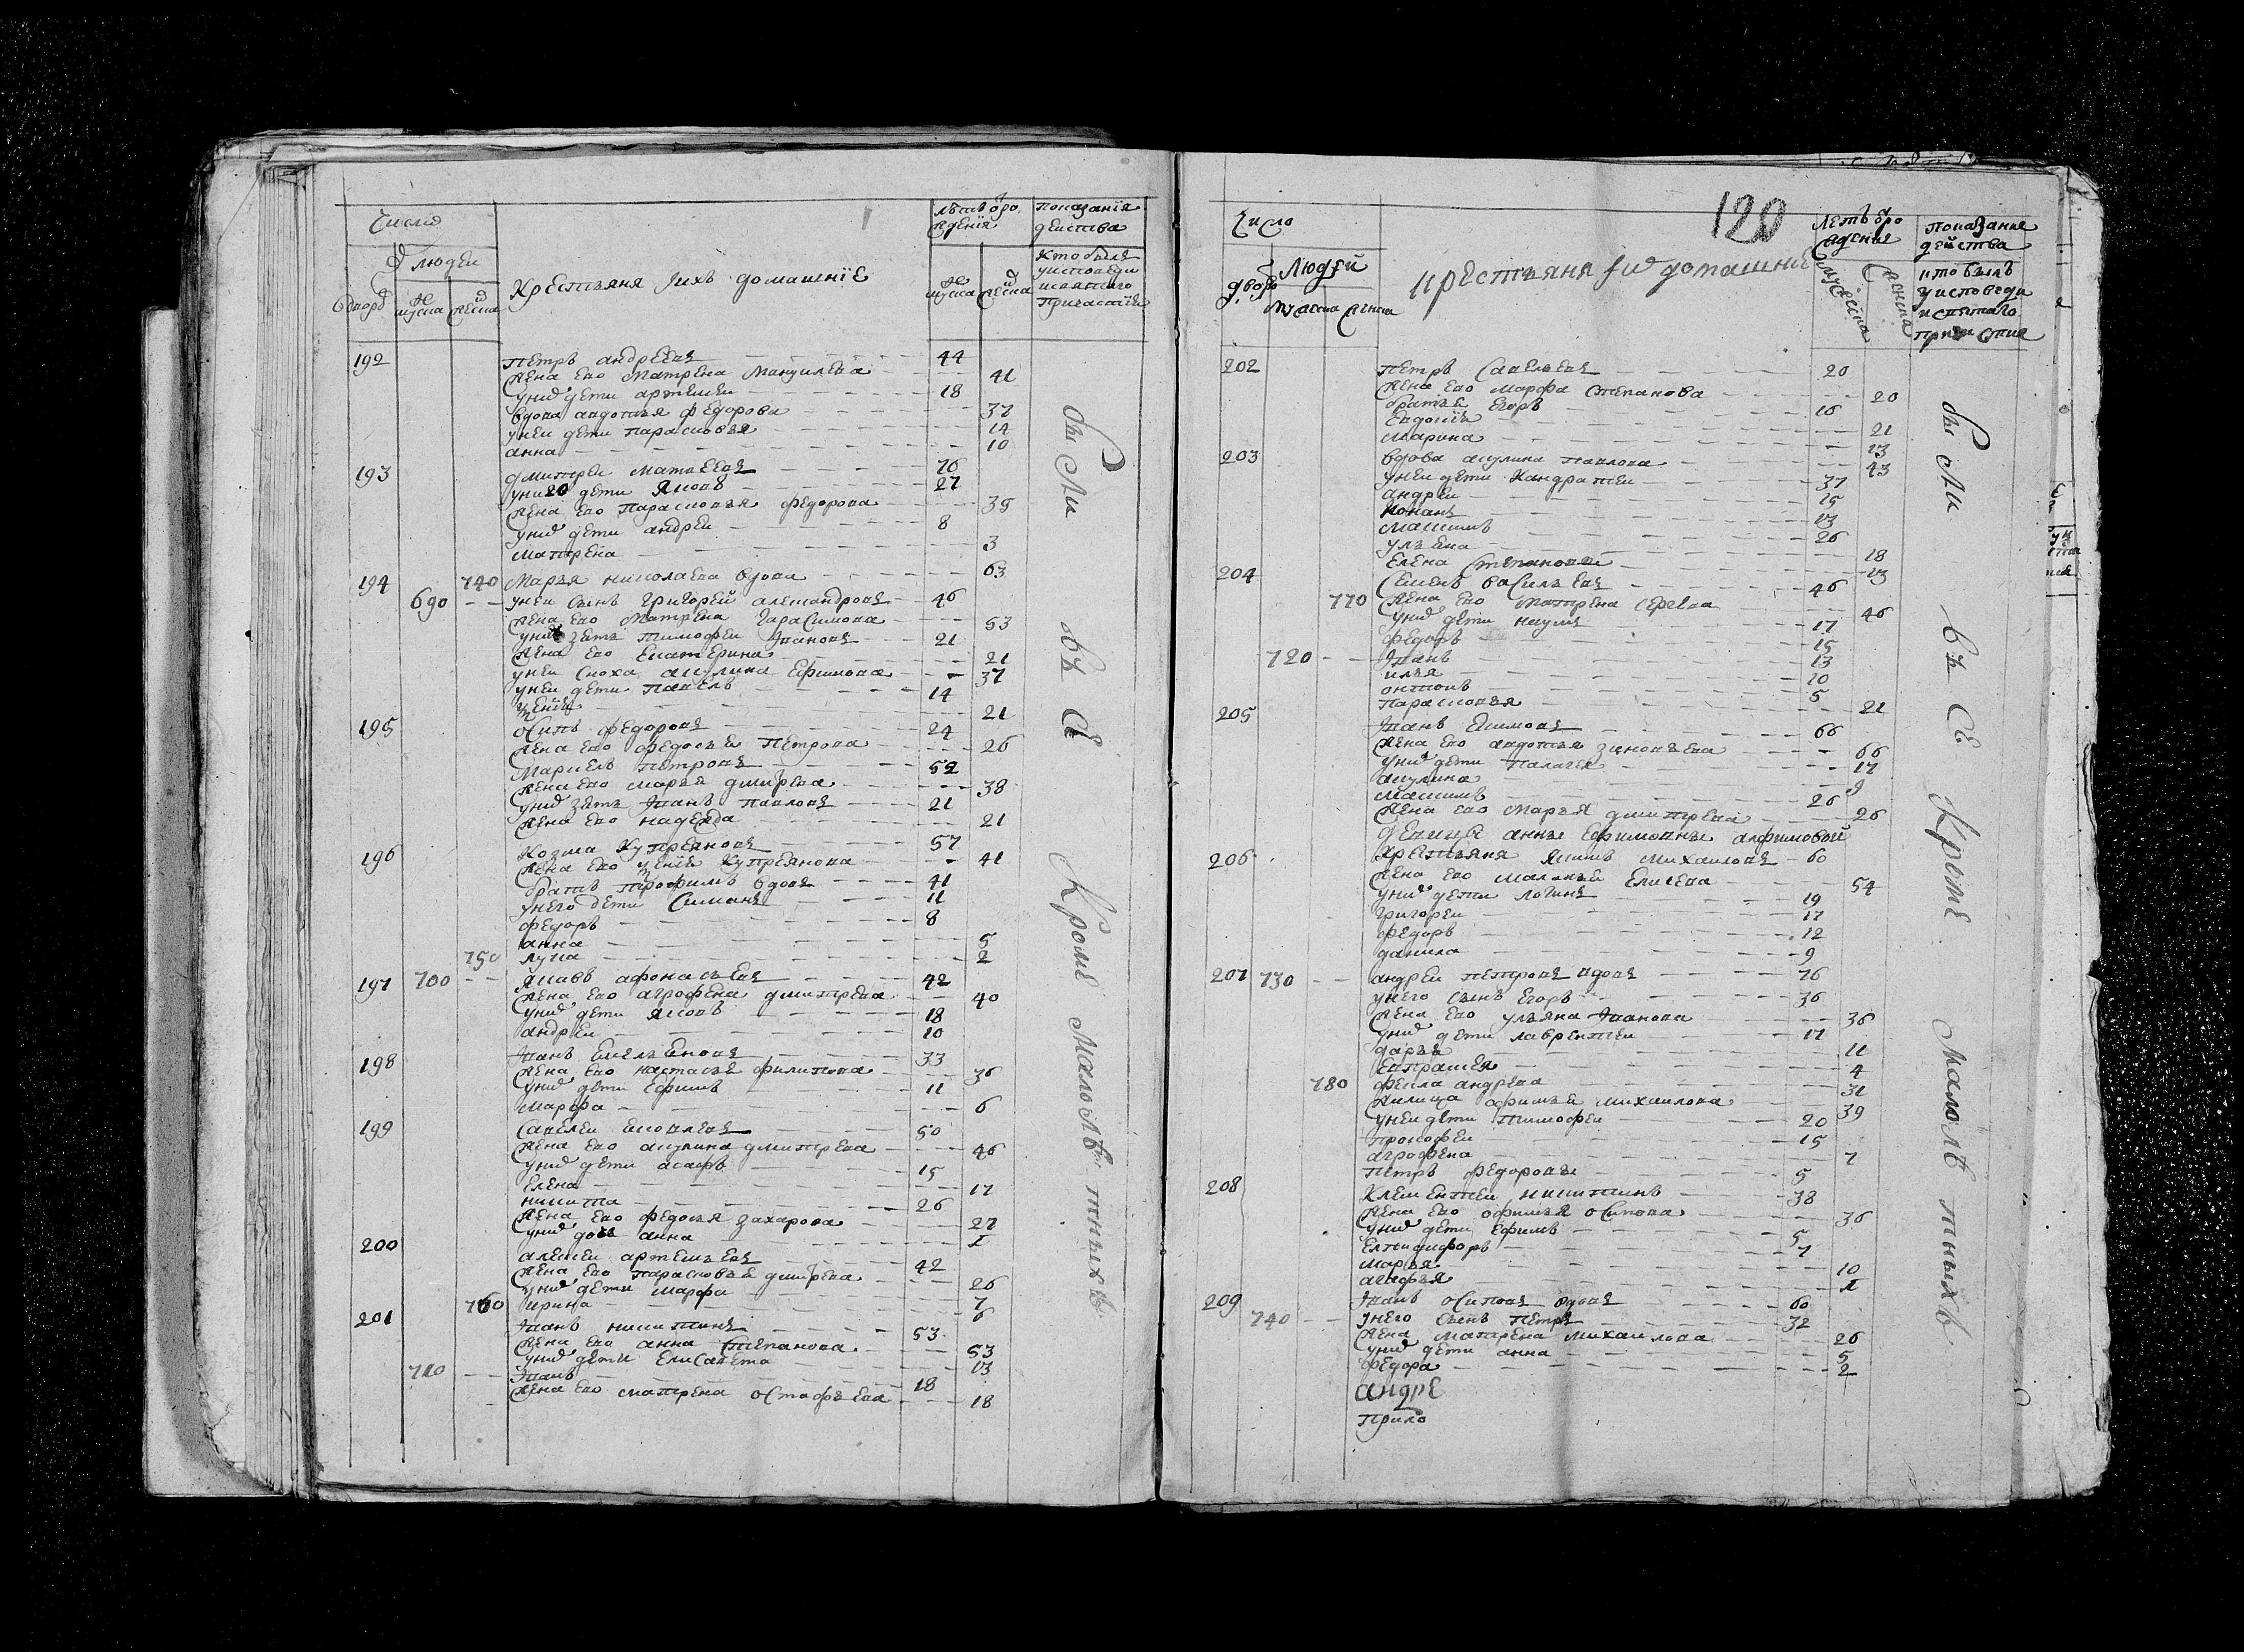 число
людей
крестьяня и ихъ домашние
показания действа
кто былъ у исповеди и святаго причастия
192 петръ андреевъ 44
жена ево матрена мануилева 41
у них дети артемеи 18
вдова авдотья федорова 37
у неи дети парасковья 14
анна 10
193 дмитреи матвеевъ 76
дети яковъ 27
жена ево парасковья федорова 35
у них дети андреи 8
матрена 3
194 740 марья николаева вдова 63
690 у неи сынъ григорей александровъ 46
жена ево матрена гарасимова 53
у них зять тимофеи ивановъ 21
жена ево екатерина 21
у неи сноха акулина ефимова 37
у неи дети павелъ 14
21
195 осипъ федоровъ 24
жена ево федосья петрова 26
маркелъ петровъ 52
жена ево марья дмитрева 38
у них зять иванъ павловъ 21
жена ево надежда 21
196 козма купреяновъ 57
жена ево купреянова 41
братъ трофимъ вдовъ 41
у него дети симанъ 11
федоръ 8
анна 5
750 лукa 2
197 700 яковъ афонасьевъ 42
жена ево агрофена дмитрева 40
у них дети яковъ 18
андреи 10
198 иванъ емельяновъ 33
жена ево настасья филипова 36
у них дети ефимъ 11
марфа 6
199 савелеи яковлевъ 50
жена ево акулина дмитрева 46
у них дети 15
елена 17
никита 26
жена ево федосья захарова 27
у них дочь анна 1
200 алексеи артемьевъ 42
жена ево парасковья дмитрева 26
у них дети марфа 7
760 ирина 6
201 иванъ никитинъ 53
жена ево анна степанова 53
у них дети елисавета 13
710 иванъ 18
жена ево матрена остафьева 18
были всѣ кроме малолѣтныхъ
120
число
дворо людей
мужеска женска
крестьяня и их домашние
летъ рождения
мужеска женска
показание действа
кто былъ у исповеди и святаго причастия
202 петръ савельевъ 20
жена ево марфа степанова 20
братья егоръ 16
евдокия 21
марина 13
203 вдова акулина павлова 43
у неи дети кандратеи 37
андреи 15
конанъ 13
максимъ 26
ульяна 18
елена степанова 13
204 семенъ васильевъ 46
770 жена ево матрена сергева 46
у них дети наумъ 17
федоръ 15
720 иванъ 13
илья 10
онтонъ 5
парасковья 21
205 иванъ екимовъ 66
жена ево авдотья зиновьева 66
у них дети палагея 17
акулина 9
максимъ 26
жена ево марья дмитрева 26
девицы анны ефимовны алфимовой
206 крестьяня якимъ михаиловъ 60
жена ево маланья елисева 54
у них дети логинъ 19
григореи 17
федоръ 12
данила 9
207 730 андреи петровъ вдовъ 76
у него сынъ егоръ 36
жена ево ульяна иванова 36
у них дети лаврентеи 17
дарья 11
евпраксея 4
780 фекла андрева 31
офимья михаилова 39
у неи дети тимофеи 20
прокофеи 15
агрофена 7
петръ федоровъ 5
208 климентеи никитинъ 38
жена ево офимья осипова 36
у них дети ефимъ 5
елпидифоръ 7
марья 10
агафья 1
209 иванъ осиповъ вдовъ 60
740 у него сынъ петръ 32
жена матрена михаилова 26
у них дети анна 5
федора 2
андре
прило
были всѣ кроме малолѣтныхъ